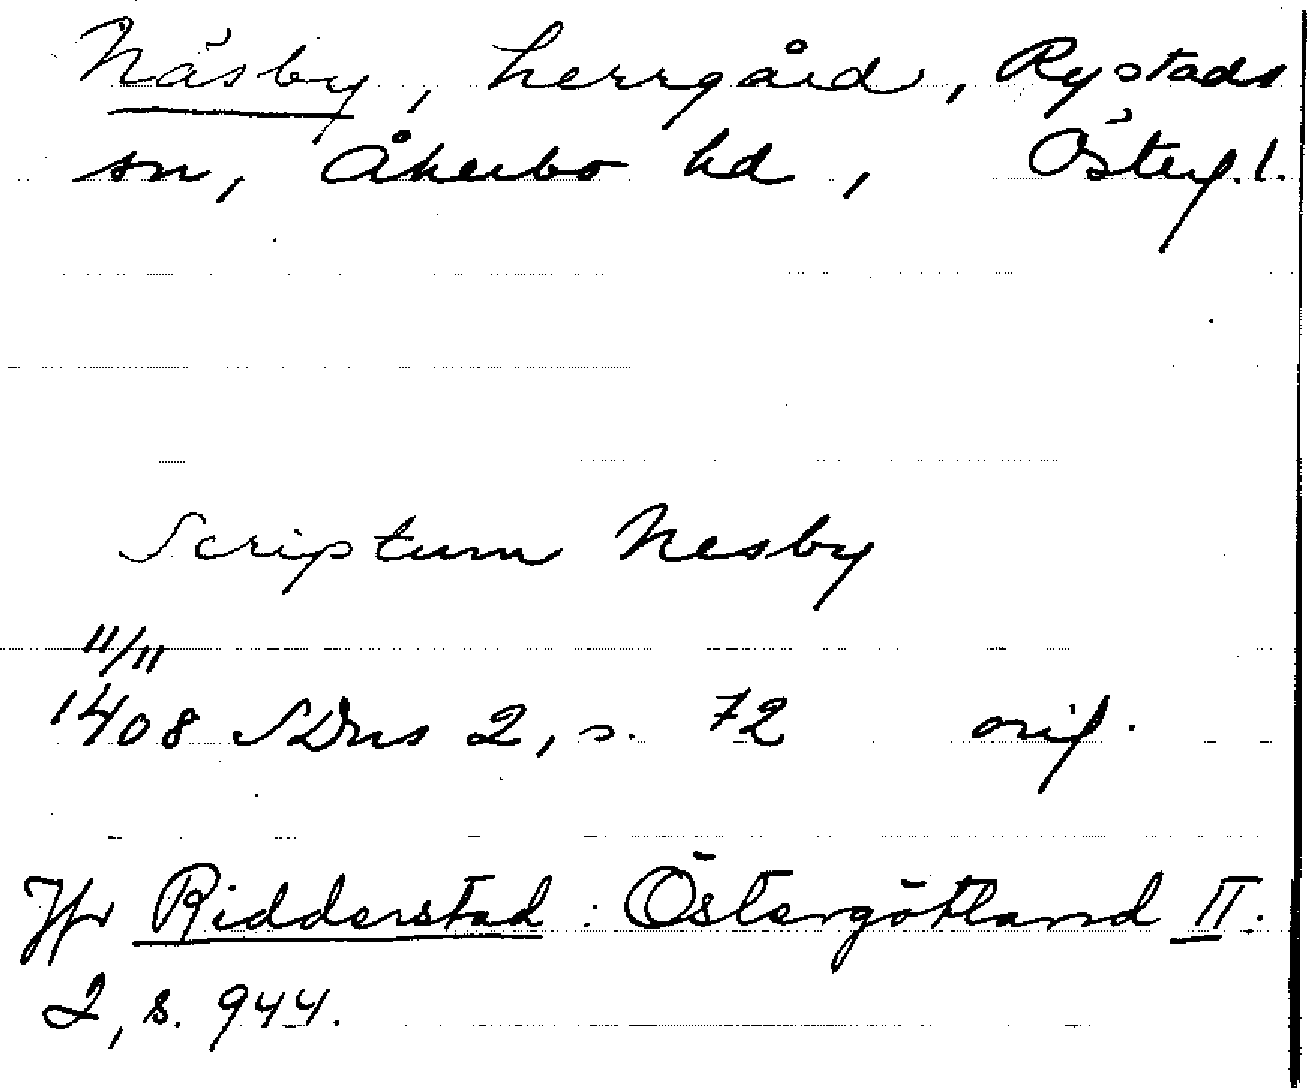 Näsby, herrgård, Rystads
sn, Åkerbo hd, Österg. l.
Scriptum Nesby
11/11
1408 SDns 2, s. 72 orig.
Jfr Ridderstad: Östergötland II.
2, s. 944.